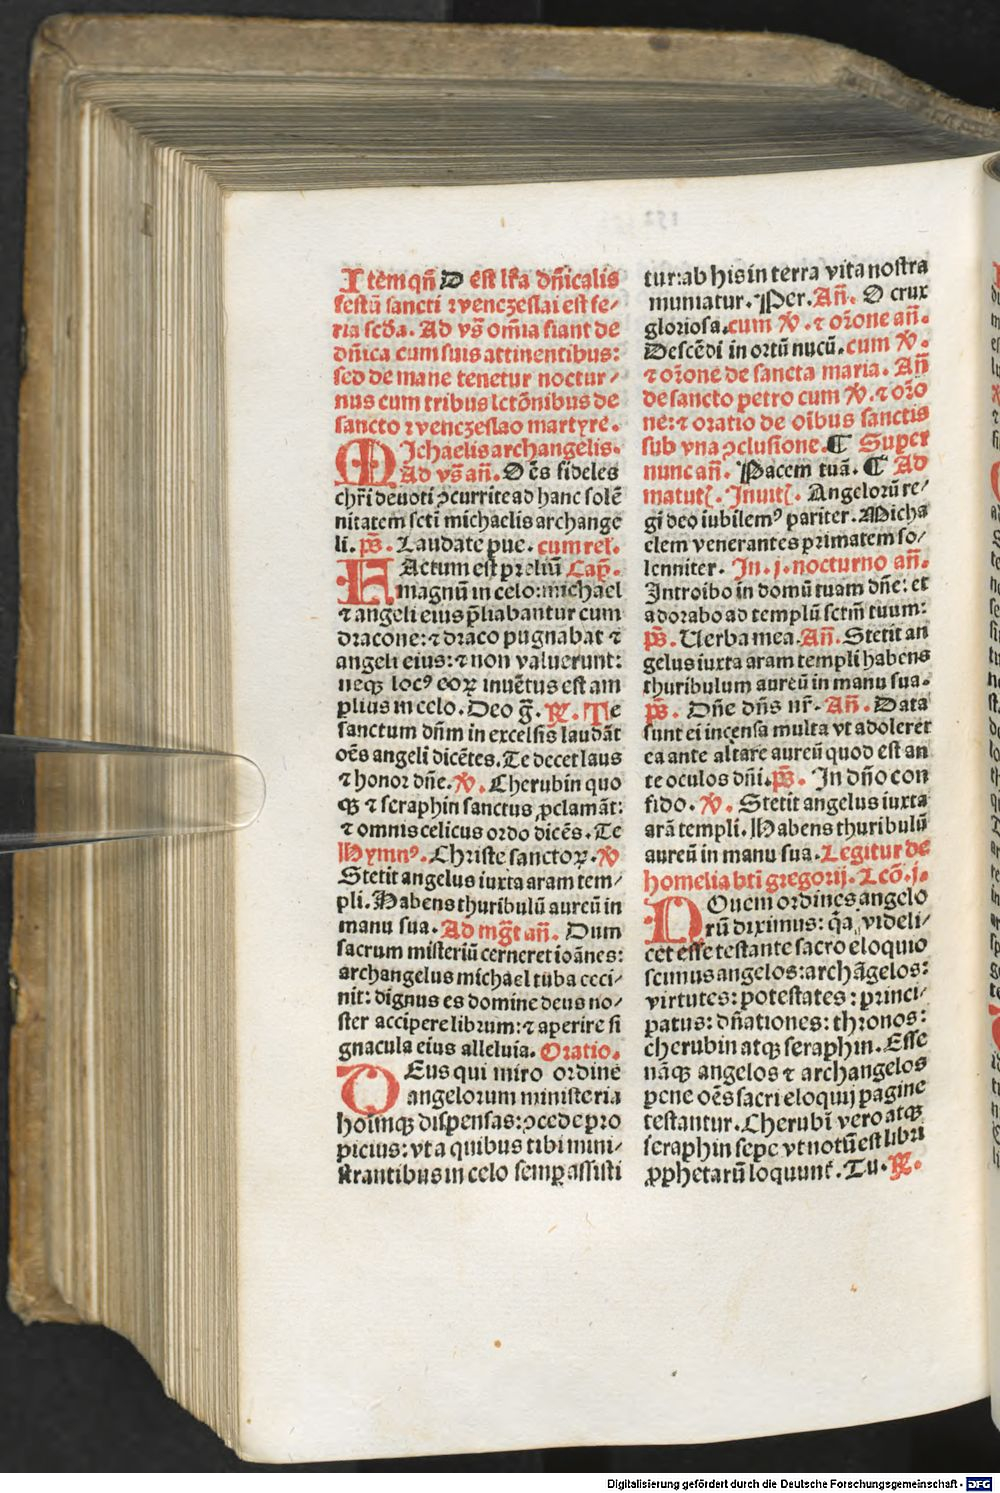 Item qñ D est lr̃a dñicalis
festũ sancti wenczeslai est fe/
ria scd̃a. Ad vs̃ om̃ia fiant de
dñica cum suis attinentibus:
sed de mane tenetur noctur/
nus cum tribus lctõnibus de
sancto wenczeslao martyre.
MIchaelis archangelis.
Ad vs̃ añ. O ẽs fideles
chr̃i deuoti ꝯcurrite ad hanc solẽ
nitatem scti michaelis archange
li. ps̃. Laudate pue. cum rel̃.
FActum est preliũ Cap̃.
magnũ in celo: michael
⁊ angeli eius p̃liabantur cum
dracone: ⁊ draco pugnabat ⁊
angeli eius: ⁊ non valuerunt:
neqꝫ locꝰ eoꝝ inuẽtus est am
plius in celo. Deo g̃. ℟. Te
sanctum dñm in excelsis laudãt
oẽs angeli dicẽtes. Te decet laus
⁊ honor dñe. ℣. Cherubin quo
qꝫ ⁊ seraphin sanctus ꝓclamãt:
⁊ omnis celicus ordo dicẽs. Te
Hymnꝰ. Christe sanctoꝝ. ℣
Stetit angelus iuxta aram tem/
pli. Habens thuribulũ aureũ in
manu sua. Ad mg̃t añ. Dum
sacrum misteriũ cerneret ioãnes:
archangelus michael tuba ceci/
nit: dignus es domine deus no/
ster accipere librum: ⁊ aperire si
gnacula eius alleluia. Oratio.
DEus qui miro ordine
angelorum ministeria
hoĩmqꝫ dispensas: ꝯcede pro
picius: vt a quibus tibi mini/
strantibus in celo semꝑ assisti
tur: ab his in terra vita nostra
muniatur. Per. Añ. O crux
gloriosa. cum ℣. ⁊ or̃one añ.
Descẽdi in ortũ nucũ. cum ℣.
⁊ or̃one de sancta maria. Añ
de sancto petro cum ℣. ⁊ or̃o
ne: ⁊ oratio de oĩbus sanctis
sub vna ꝯclusione. ¶ Super
nunc añ. Pacem tuã. ¶ Ad
matut̃. Inuit̃. Angelorũ re/
gi deo iubilemꝰ pariter. Micha
elem venerantes primatem so/
lenniter. In .j. nocturno añ.
Introibo in domũ tuam dñe: et
adorabo ad templũ sctm̃ tuum:
ps̃. Uerba mea. Añ. Stetit an
gelus iuxta aram templi habens
thuribulum aureũ in manu sua.
ps̃. Dñe dñs nr̃. Añ. Data
sunt ei incensa multa vt adoleret
ea ante altare aureũ quod est an
te oculos dñi. ps̃. In dño con
fido. ℣. Stetit angelus iuxta
arã templi. Habens thuribulũ
aureũ in manu sua. Legitur de
homelia bt̃i gregorij. Lcõ. j.
NOuem ordines angelo
rũ diximus: q̃a videli/
cet esse testante sacro eloquio
scimus angelos: archãgelos:
virtutes: potestates: princi/
patus: dñationes: thronos:
cherubin atqꝫ seraphin. Esse
nãqꝫ angelos ⁊ archangelos
pene oẽs sacri eloquij pagine
testantur. Cherubĩ vero atqꝫ
seraphin sepe vt notũ est libri
ꝓphetarũ loquunt̃. Tu. ℟.
Digitalisierung gefördert durch die Deutsche Forschungsgemeinschaft - DFG